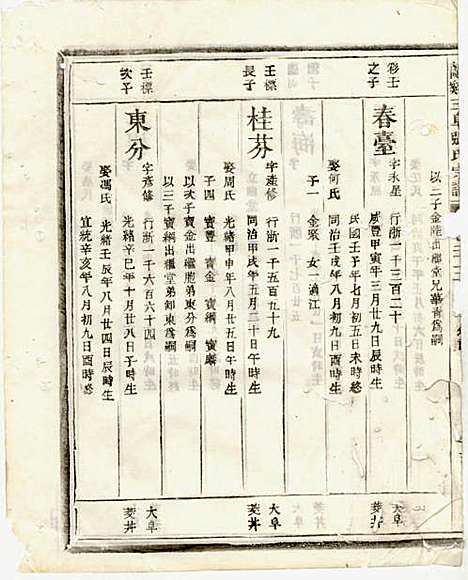 以二子金陞出繼堂兄華言爲嗣
彩壬
之子
春臺
字永星　行浙一千三百二十
咸豐甲寅年三月廿九日辰時生
民國壬子年七月初五日未時終
娶何氏　同治壬戌年八月初九日　時生
子一　金聚　女一適江
大阜
菱丼
壬標
長子
桂芬
字彥修　行浙一千五百九十
同治甲戌年五月二十日午時生
娶周氏　光緒甲申年八月廿五日午時生
子四　寶豐　寶金　寶綱
以次子寶金出繼胞弟東分爲嗣
以三子寶綱出繼堂弟師東爲嗣
大阜
菱丼
壬標
次子
東分
字彥修　行浙一千六百六十四
光緒辛巳年十月廿八日子時生
娶馮氏　光緒壬辰年八月廿四日辰時生
宣統辛亥年八月初九日酉時終
大阜
菱丼